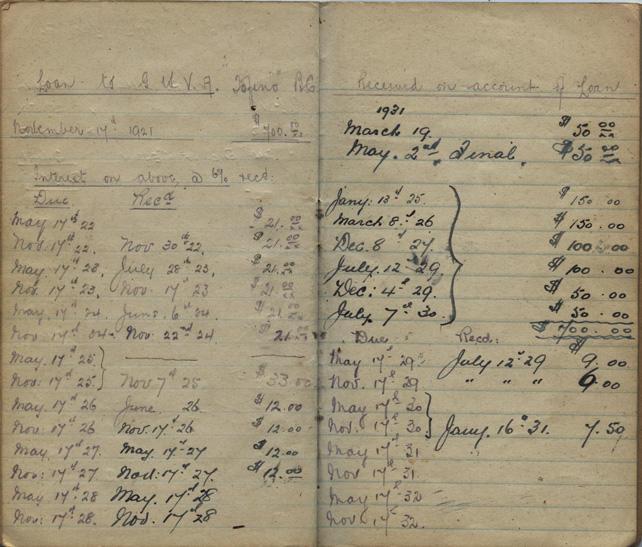 Loan to G.W.V.A. Tofino B.C.
November 17th 1921 $700.00
Interest on above @ 6% recd:
Due Recd
May 17th 22 $21.00
Nov. 17th 22. Nov 30th 22, $21.00
May 17th 23, July 28th 23, $21.00
Nov. 17th 23, Nov. 17th 23 $21.00
May 17th 24 June 6th 24 $21.00
Nov 17th 24 Nov 22nd 24 $21.00
May 17th 25
Nov. 17th 25 Nov 7th 25 $33.00
May 17th 26 June 26 $12.00
Nov 17th 26 Nov. 17th 26 $12.00
May 17th 27. May 17th 27 $12.00
Nov: 17th 27 Nov: 17th 27. $12.00
May 17th 28 May. 17th 28
Nov: 17th 28. Nov. 17th 28
Received on account of Loan
1931
March 19. $50.00
May. 2nd, Final. $50.00
Jany: 13th 25. $150.00
March 8th 26 $150.00
Dec. 8th 27. $100.00
July. 12th 29. $100.00
Dec: 4th 29. $50.00
July. 7th 30. $50.00
$700.00
Due Recd:
May 17th 29 July 12th 29 $9.00
Nov. 17th 29 " " " 9.00
May 17th 30
Nov. 17th 30 Jany. 16th 31. 7.50
May 17th 31
Nov 17th 31.
May 17th 32
Nov 17th 32.